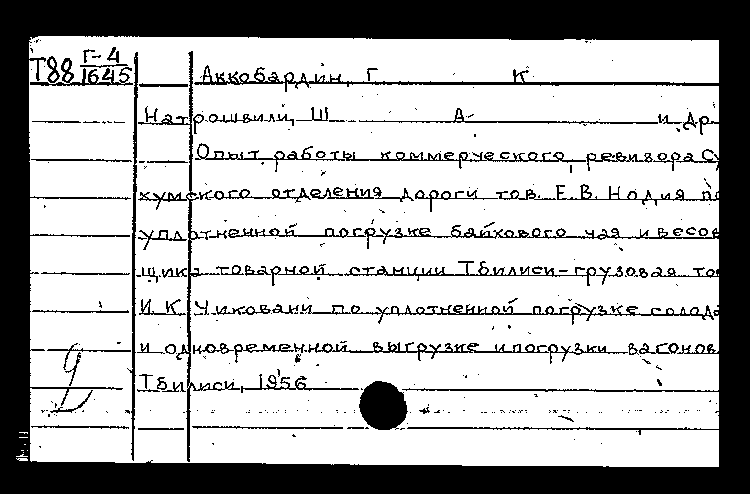 Т88 Г-4/1645 Аккобардин, Г. К
Натрошвили, Ш А. и др
Опыт работы коммерческого ревизора Су
хумского отделения дороги тов. Е.В. Нодия по
уплотненной погрузке байхового чая и весов
щика товарной станции Тбилиси-грузовая тов
И.К. Чиковани по уплотненной погрузке солода
и одновременной выгрузке и погрузки вагонов.
Тбилиси, 1956
2